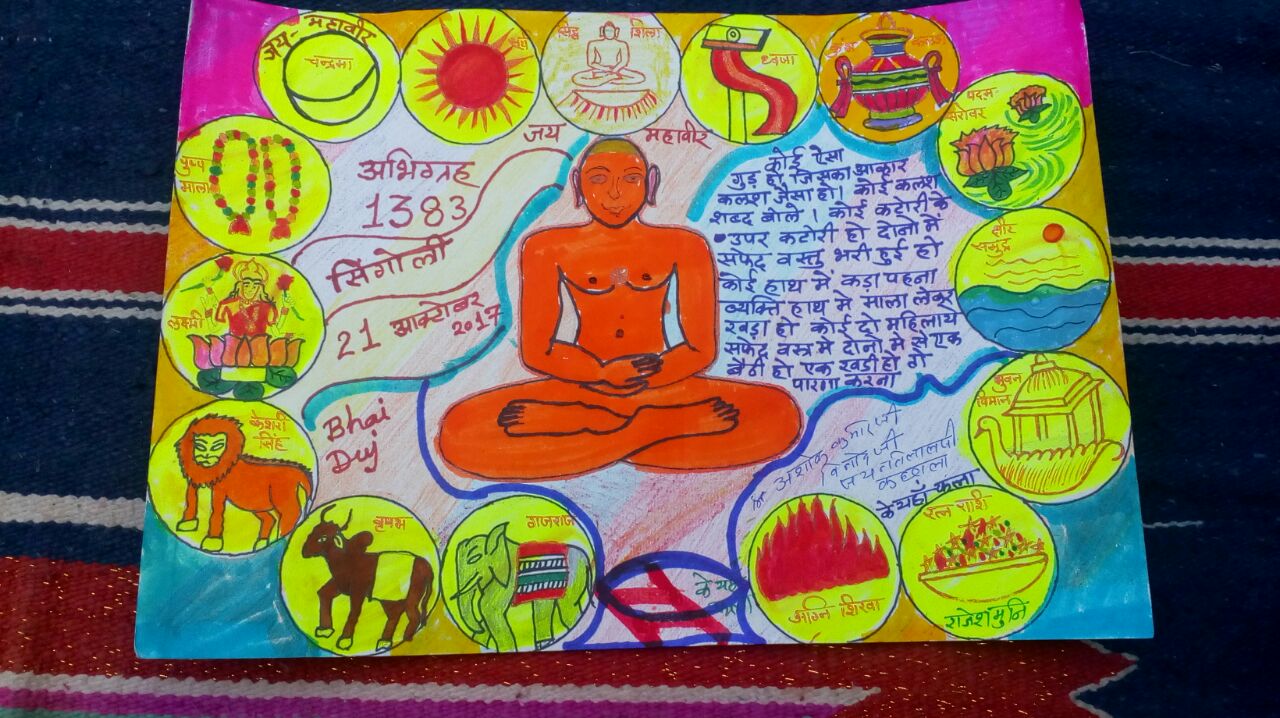 जय-महावीर
चन्द्रमा
सूर्य
सिद्ध शिला
ध्वजा
कलश
पदम-
सरोवर
पुष्प
माला
जय महावीर
अभिग्रह
1383
सिंगोली
21 आक्टोबर
2017
Bhai
Duj
कोई ऐसा
गुड़ हो जिसका आकार
कलश जैसा हो। कोई कलश
शब्द बोले। कोई कटोरी के
उपर कटोरी हो दोनो में
सफेद वस्तु भरी हुई हो
कोई हाथ में कड़ा पहना
व्यक्ति हाथ मे माला लेकर
खड़ा हो कोई दो महिलाये
सफेद वस्त्र मे दोनो मे से एक
बैठी हो एक खडी हो तो
पारणा करना
क्षीर
समुद्र
लक्ष्मी
भुवन
विमान
केशरी
सिंह
अशोक कुमार जी
विनोद जी
के यहां फला
वृषभ
गजराज
अग्नि शिखा
रत्न राशि
राजेशमुनि